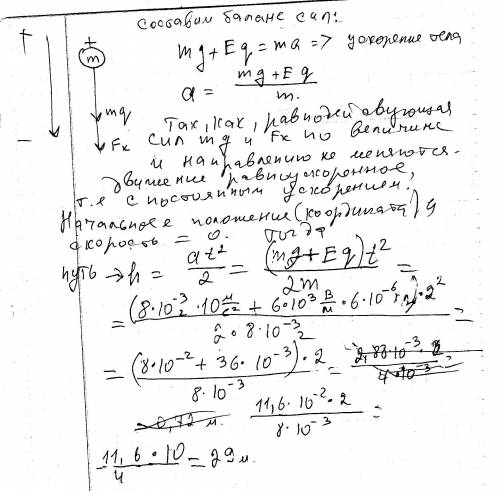 Составим баланс сил:
+
+
m
mg + Eq = ma => ускорение тела
a = (mg + Eq)/m.
mg
Fк
−
Так, как, равнодействующая
сил mg и Fк по величине
и направлению не меняются.
движение равноускоренное,
т.е с постоянным ускорением.
Начальное положение (координата) и
скорость = 0. Тогда
путь → h = at²/2 = (mg + Eq)t²/2m =
= (8·10⁻³·10 м/с² + 6·10³ В/м · 6·10⁻⁶)·2²/2·8·10⁻³ =
= (8·10⁻² + 36·10⁻³)·2/8·10⁻³ =
11,6·10⁻²·2/8·10⁻³ =
11,6·10/4 = 29 м.